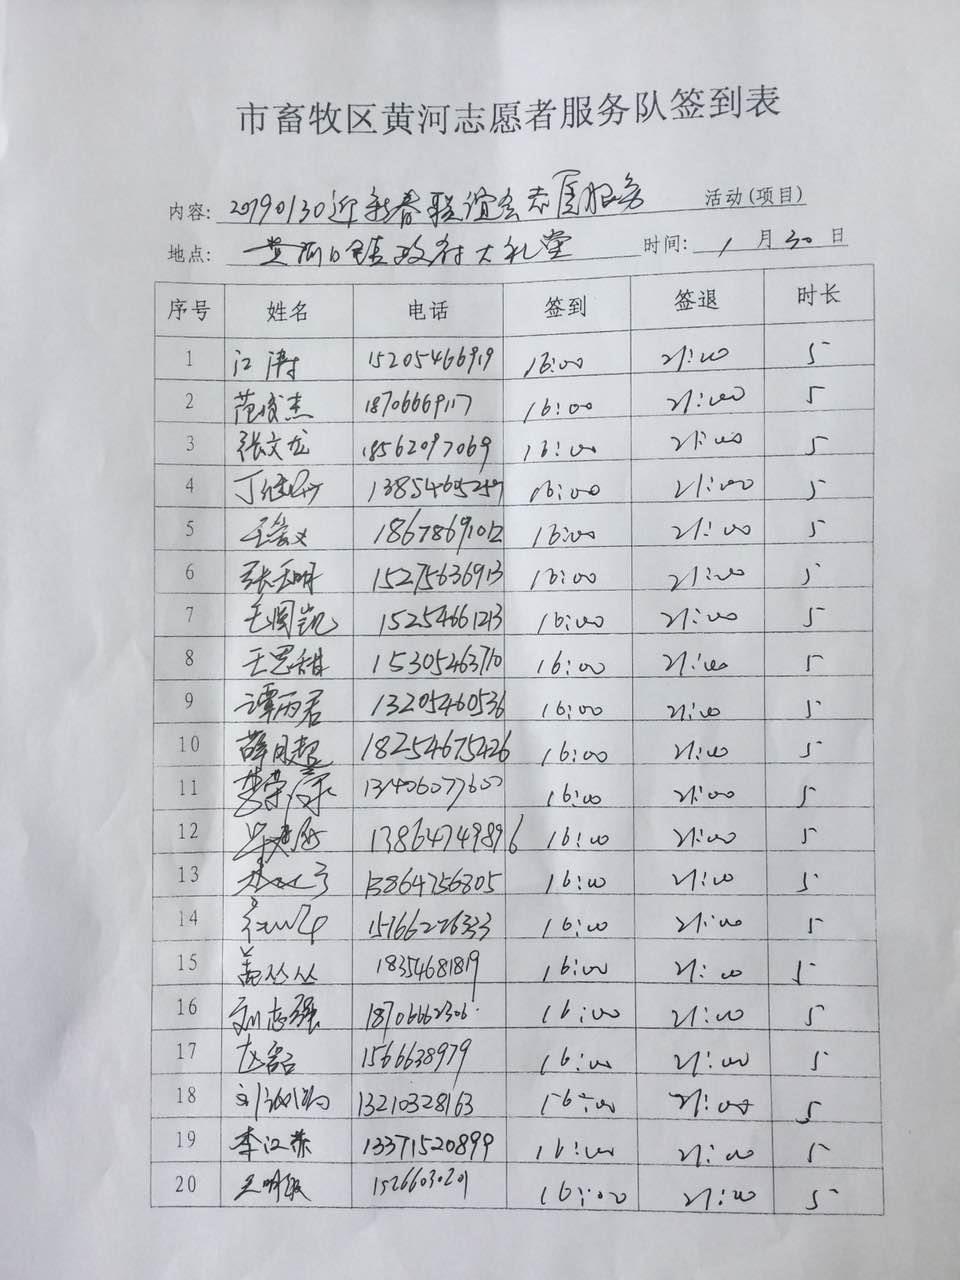 市畜牧区黄河志愿者服务队签到表
内容: 20190130迎新春联谊会志愿服务 活动(项目)
地点: 黄河口镇政府大礼堂 时间: 1月30日
序号 姓名 电话 签到 签退 时长
1 江涛 15205466919 16:00 21:00 5
2 范成杰 18706669117 16:00 21:00 5
3 张文龙 18562097069 16:00 21:00 5
4 16:00 21:00 5
5 18678691012 16:00 21:00 5
6 张玉明 15275636913 16:00 21:00 5
7 王国凯 15254661213 16:00 21:00 5
8 王思甜 15305463710 16:00 21:00 5
9 谭丙君 13205460536 16:00 21:00 5
10 薛月超 18254675426 16:00 21:00 5
11 16:00 21:00 5
12 13864749896 16:00 21:00 5
13 13864756805 16:00 21:00 5
14 15766276333 16:00 21:00 5
15 盖丛丛 18354681819 16:00 21:00 5
16 刘志强 18706662306 16:00 21:00 5
17 1566638979 16:00 21:00 5
18 13210328163 16:00 21:00 5
19 李江燕 13371520899 16:00 21:00 5
20 16:00 21:00 5